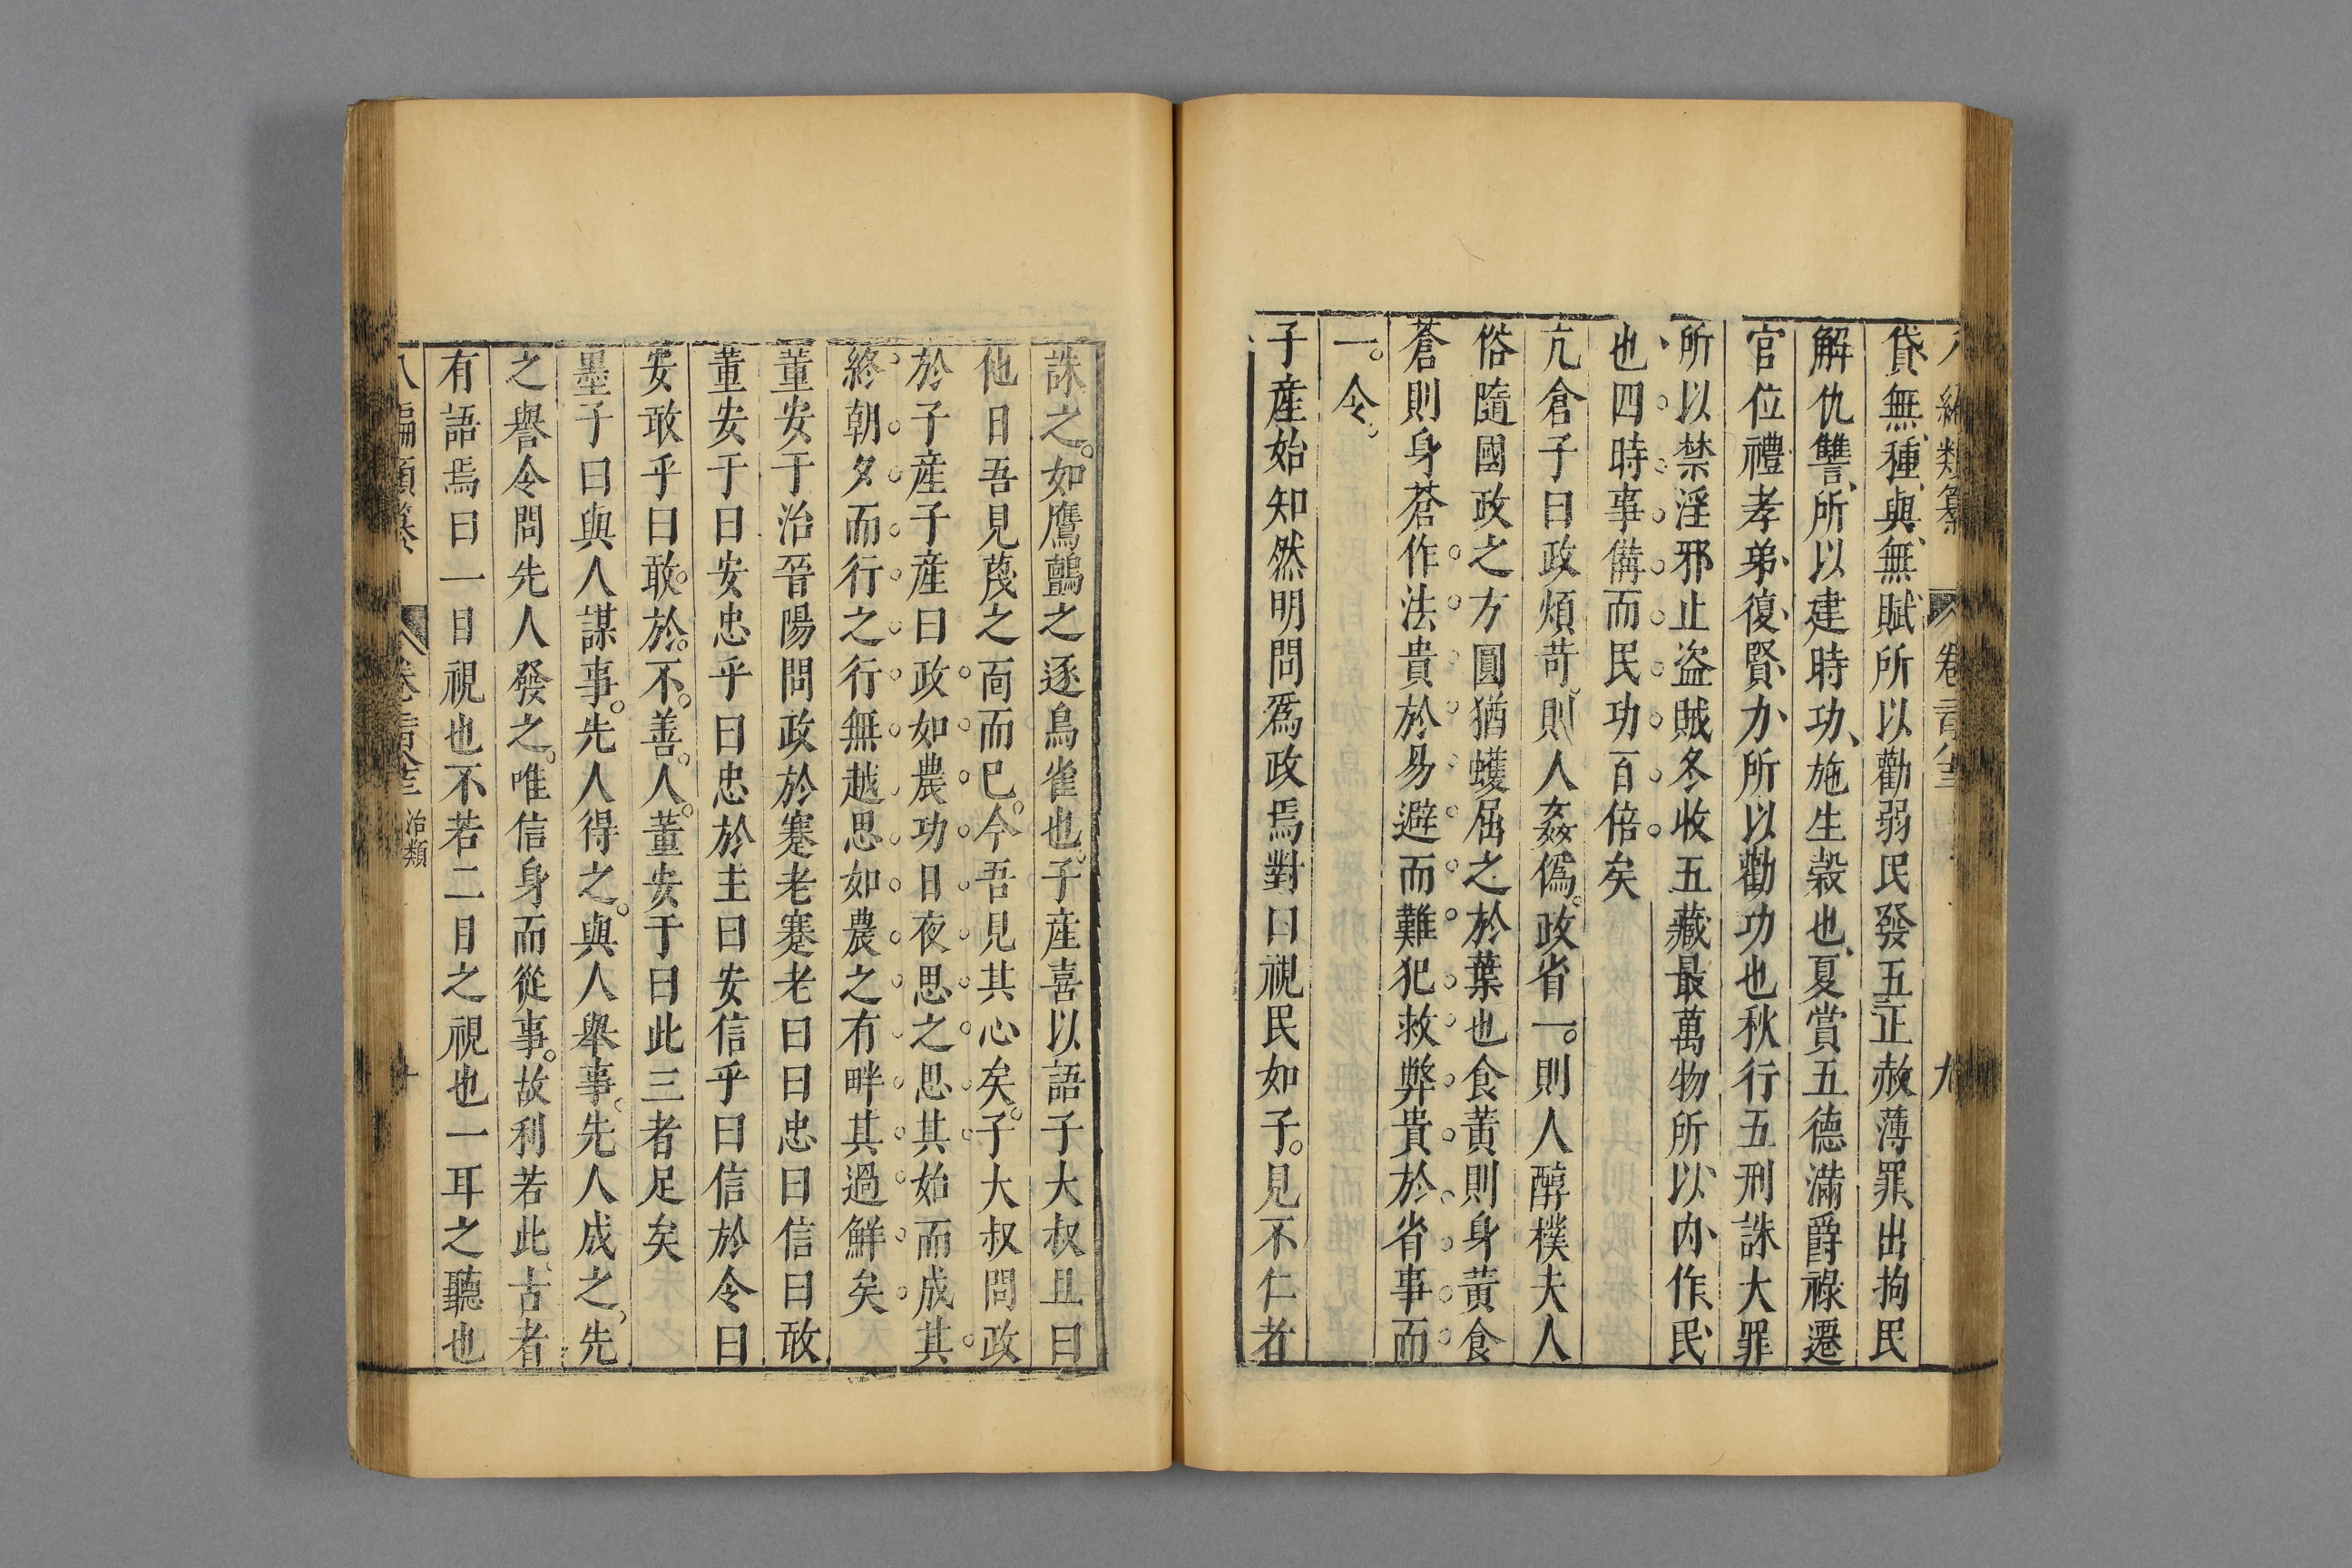 貸無種與無賦所以勸弱民發五正赦薄罪出拘民
解仇讐所以建時功施生穀也夏賞五德滿爵祿遷
官位禮孝弟復賢力所以勸功也秋行五刑誅大罪
所以禁淫邪止盜賊冬收五藏最萬物所以內作民
也四時事備而民功百倍矣
亢倉子曰政煩苛則人姦僞政省一則人醇樸夫人
俗隨國政之方圓猶蠖屈之於葉也食黃則身黃食
蒼則身蒼作法貴於易避而難犯救弊貴於省事而
一令
子產始知然明問爲政焉對曰視民如子見不仁者
誅之如鷹鸇之逐鳥雀也子產喜以語子大叔且曰
他日吾見蔑之面而已今吾見其心矣子大叔問政
於子產子產曰政如農功日夜思之思其始而成其
終朝夕而行之行無越思如農之有畔其過鮮矣
董安于治晉陽問政於蹇老蹇老曰曰忠曰信曰敢
董安于曰安忠乎曰忠於主曰安信乎曰信於令曰
安敢乎曰敢於不善人董安于曰此三者足矣
墨子曰與人謀事先人得之與人舉事先人成之先
之譽令問先人發之唯信身而從事故利若此古者
有語焉曰一目視也不若二目之視也一耳之聽也
八編類纂
治類
十